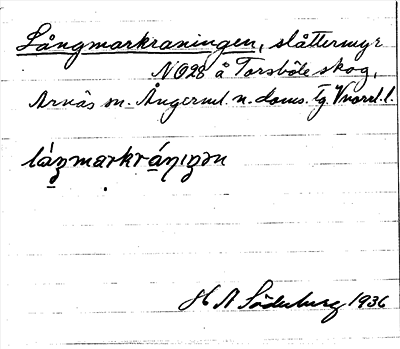 Långmarkraningen, slåttermyr
NO28 å Torsböle skog,
Arnäs sn. Ångerml. n. doms. tg. Vnorrl. l.
láŋmarkráŋıŋən
H A Söderberg 1936